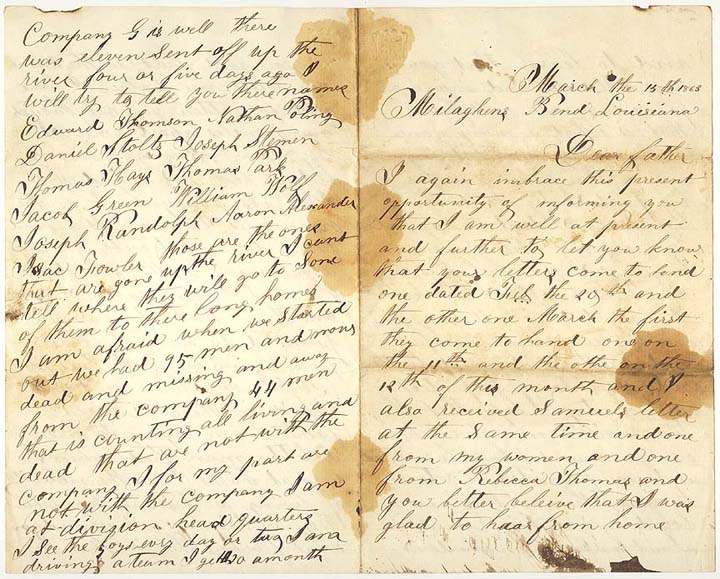 Company G is well there
was eleven sent off up the
river four or five days ago I
will try to tell you there names
Edward Thomson Nathan Poling
Daniel Stoltz Joseph Stemen
Thomas Hays Thomas Park
Jacob Green William Wolf
Joseph Randolph Aaron Alexander
Isac Fowler those are the ones
that are gone up the river I cant
tell where they will go to some
of them to there long homes
I am afraid when we started
out we had 95 men and now
dead and missing and away
from the company 44 men
that is counting all living and
dead that are not with the
company I for my part are
not with the company I am
at division head quarters
I see the boys evry day or two I am
driving a team I get a month
March the 15th 1863
Milaghens Bend Louisiana
Dear father
I again imbrace this present
opportunity of informing you
that I am well at present
and further to let you know
that your letters come to hand
one dated Feb the 20th and
the other one March the first
they come to hand one on
the 11th and the othe on the
12th of this month and I
also recived Samuels letter
at the same time and one
from my women and one
from Rebecca Thomas and
you better beleive that I was
glad to haar from home